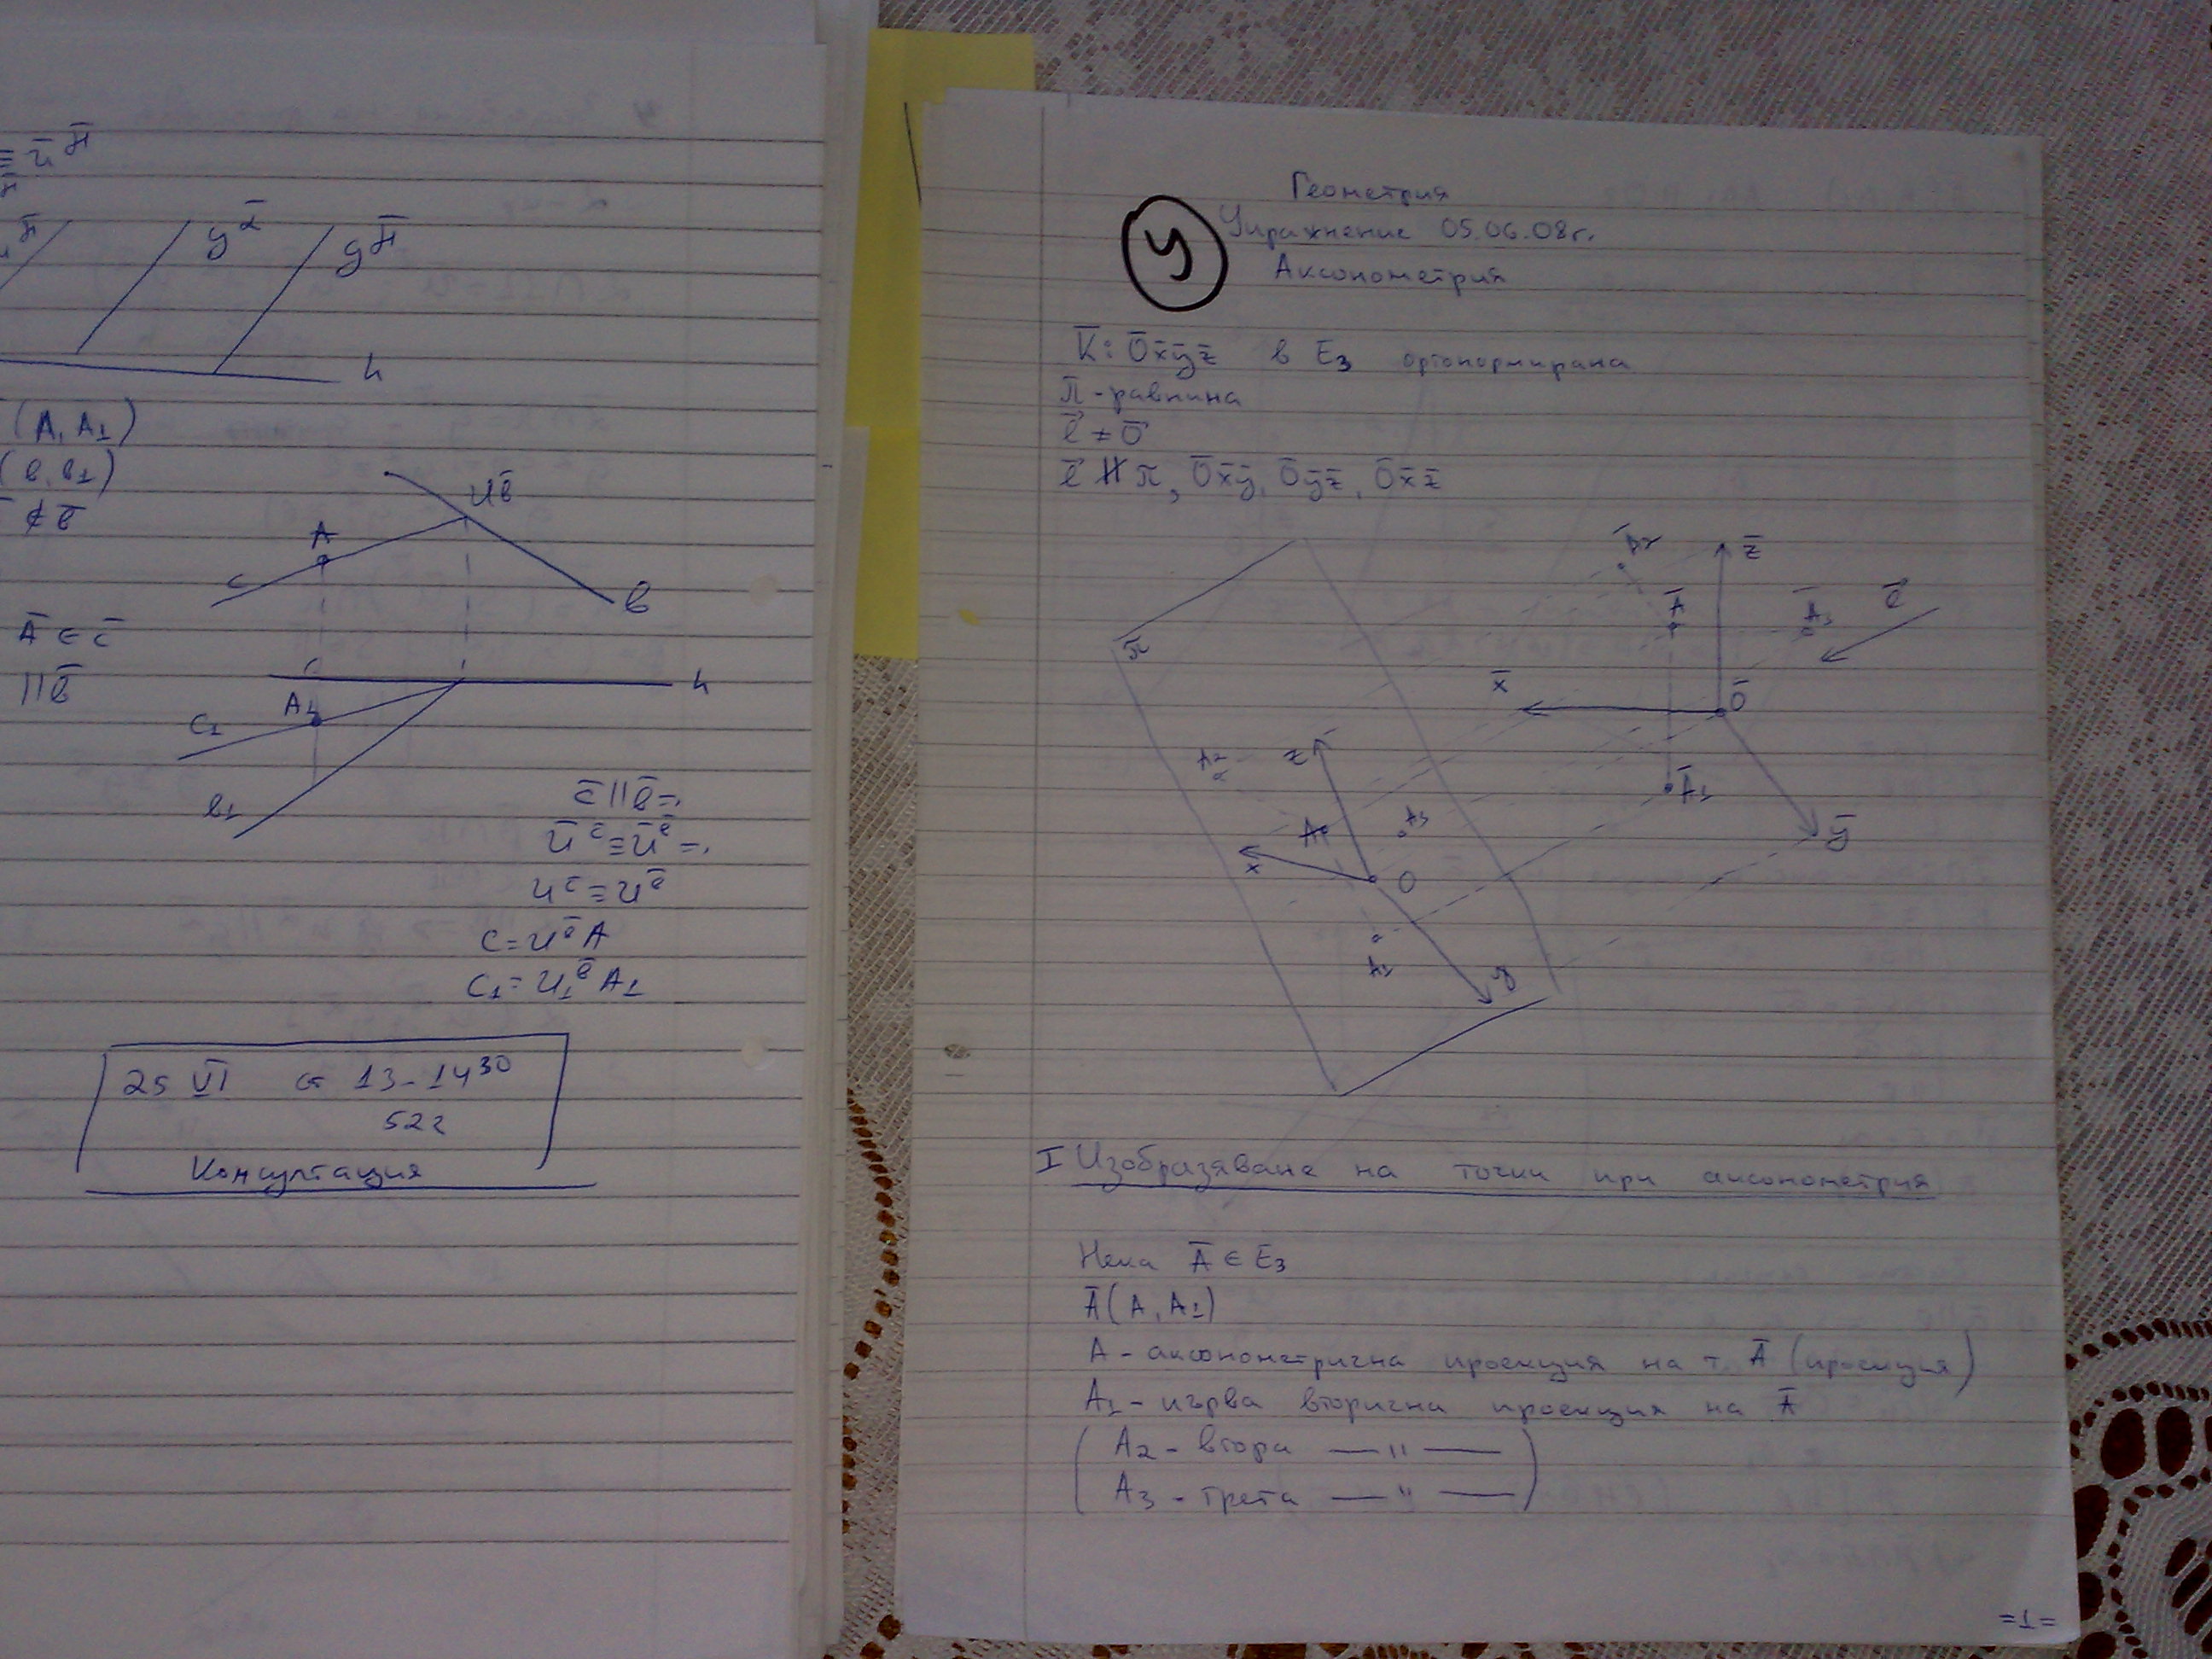 ≡ ū π̄
y ᾱ
y π̄
h
(A, A₁)
(в, в₁)
∉ в̄
U в̄
A
c
в
Ā ∈ c̄
|| в̄
h
A₁
c₁
в₁
c̄ || в̄ ⇒
Ū c̄ ≡ Ū в̄ ⇒
U c̄ ≡ U в̄
c = U в̄ A
c₁ = U₁ в̄ A₁
25 VI от 13 - 14³⁰
522
Консултация
Геометрия
У
Упражнение 05.06.08г.
Аксонометрия
K̄: Ōx̄ȳz̄ в E₃ ортонормирана
π - равнина
l⃗ ≠ o⃗
l⃗ ∦ π, Ōx̄ȳ, Ōȳz̄, Ōx̄z̄
Ā₂
z̄
Ā
Ā₃
l⃗
π
x̄
Ō
A₂
z
Ā₁
A
A₃
ȳ
x
O
A₁
y
I Изобразяване на точки при аксонометрия
Нека Ā ∈ E₃
Ā(A, A₁)
A - аксонометрична проекция на т. Ā (проекция)
A₁ - първа вторична проекция на Ā
(A₂ - втора —"—
A₃ - трета —"—)
=1=